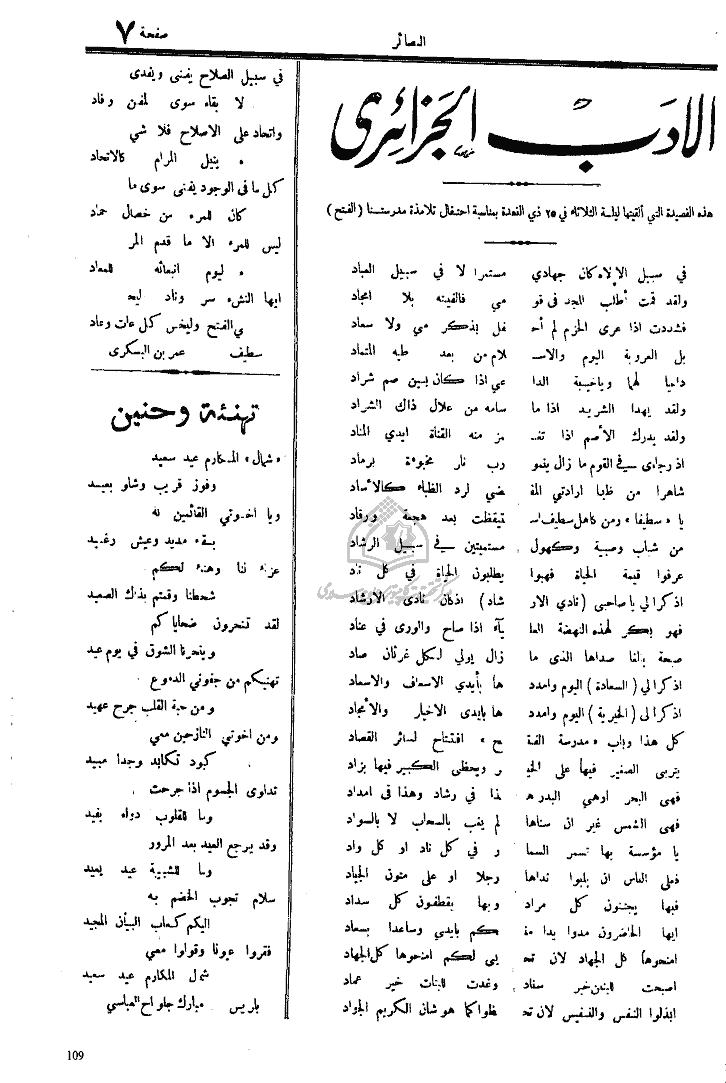 صفحة ٧
البصائر
الادب الجزائرى
هذه القصيدة التي ألقيتها ليلة الثلاثاء في ٢٥ ذي القعدة بمناسبة احتفال تلامذة مدرستنا ( الفتح )
في سبيل الإله كان جهادي مستمرا لا في سبيل العباد
ولقد قمت أطلب المجد في قو مي فالفيته بلا امجاد
فشددت اذا عرى الحزم لم أحـ فل بذكر مي ولا سعاد
بل العروبة اليوم والاسـ لام من بعد طيه المتماد
داعيا لهما وياخيبة الدا عي اذا كان بين صم شراد
ولقد يهدا الشريد اذا ما سامه من علال ذاك الشراد
ولقد يدرك الأصم اذا تغـ مز منه القناة ايدي المناد
اذ رجاءى في القوم ما زال ينمو رب نار مخبوءة برماد
شاهرا من ظبا ارادتي المـ ضي لرد الظباء كالأساد
يا « سطيفا » ومن كاهل سطيف اسـ تيقظت بعد هجعة ورقاد
من شباب وصبية وكهول مستميتين في سبيل الرشاد
عرفوا قيمة الحياة فهبوا يطلبون الحياة في كل ناد
اذكرا لي يا صاحبي ( نادي الار شاد ) اذ كان نادى الارشاد
فهو بكر لهذه النهضة العلـ ياء اذا صاح والورى في عناد
صيحة بالنا صداها الذى ما زال يولي لكل غرثان صاد
اذكرا لي ( السعادة ) اليوم وامدد ها بأيدي الاسعاف والاسعاد
اذكرا لي ( الخيرية ) اليوم وامدد ها بايدى الاخيار والأمجاد
كل هذا وباب « مدرسة الفتـ ح » افتتاح لسائر القصاد
يتربى الصغير فيها على الخيـ ر ويحظى الكبير فيها بزاد
فهى البحر اوهي البدر هـ ذا في رشاد وهذا فى امداد
فهى الشمس غير ان سناها لم يغب بالسحاب لا بالسواد
يا مؤسسة بها تسمر السما ر في كل ناد او كل واد
فعلى الناس ان يلبوا نداها رجلا او على متون الجياد
فبها يجتنون كل مراد وبها يقطفون كل سداد
ايها الحاضرون مدوا يدا منـ كم بايدي وساعدا بسعاد
امنحوها كل الجهاد لان تحـ يى لكم امنحوها كل الجهاد
اصبحت للبنين خير سناد وغدت للبنات خير عماد
ابذلوا النفس والنفيس لان تحـ ظوا كما هو شان الكريم الجواد
في سبيل الصلاح يفنى ويفدى
لا بقاء سوى لمفن وفاد
واتحاد على الاصلاح فلا شي
ء ينيل المرام كالاتحاد
كل ما في الوجود يفنى سوى ما
كان للمرء من خصال حماد
ليس للمرء الا ما قدم المر
ء ليوم انبعاثه للمعاد
ايها النشء سر وناد ليحـ
ي الفتح وليخس كل عات وعاد
سطيف عمر بن البسكرى
تهنئة وحنين
« شمال » المكارم عيد سعيد
وفوز قريب وشاو بعيد
ويا اخوتي القائمين له
بقاء مديد وعيش رغيد
عزاء لنا وهناء لكم
شحطنا وفتم بذاك الصعيد
لقد تنحرون ضحاياكم
وينحرنا الشوق في يوم عيد
تهنيكم من جفوني الدموع
ومن حبة القلب جرح عهيد
ومن اخوتي النازحين معي
كبود تكابد وجدا مبيد
تداوى الجسوم اذا جرحت
وما للقلوب دواء يفيد
وقد يرجع العيد بعد المرور
وما للشبيبة عيد يعيد
سلام تجوب الخضم به
اليكم كعاب البيان المجيد
فقروا عيونا وقولوا معي
شمال المكارم عيد سعيد
باريس مبارك جلواح العباسي
109